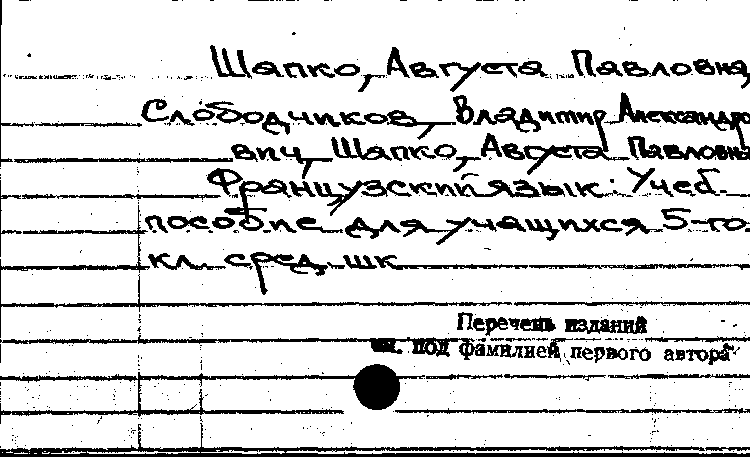 Шапко, Августа Павловна,
Слободчиков, Владимир Александро
вич, Шапко, Августа Павловна
Французский язык: Учеб.
пособие для учащихся 5-го
кл. сред. шк
Перечень изданий
см. под фамилией первого автора